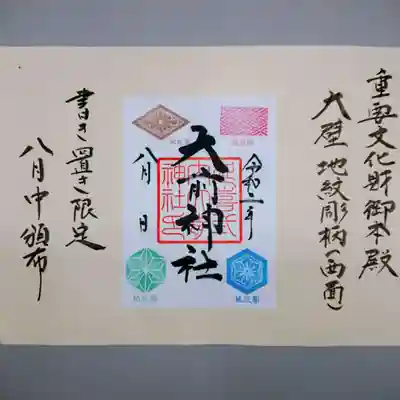 重要文化財御本殿
大壁地紋彫柄(西面)
令和二年
大前神社
八月 日
書き置き限定
八月中頒布